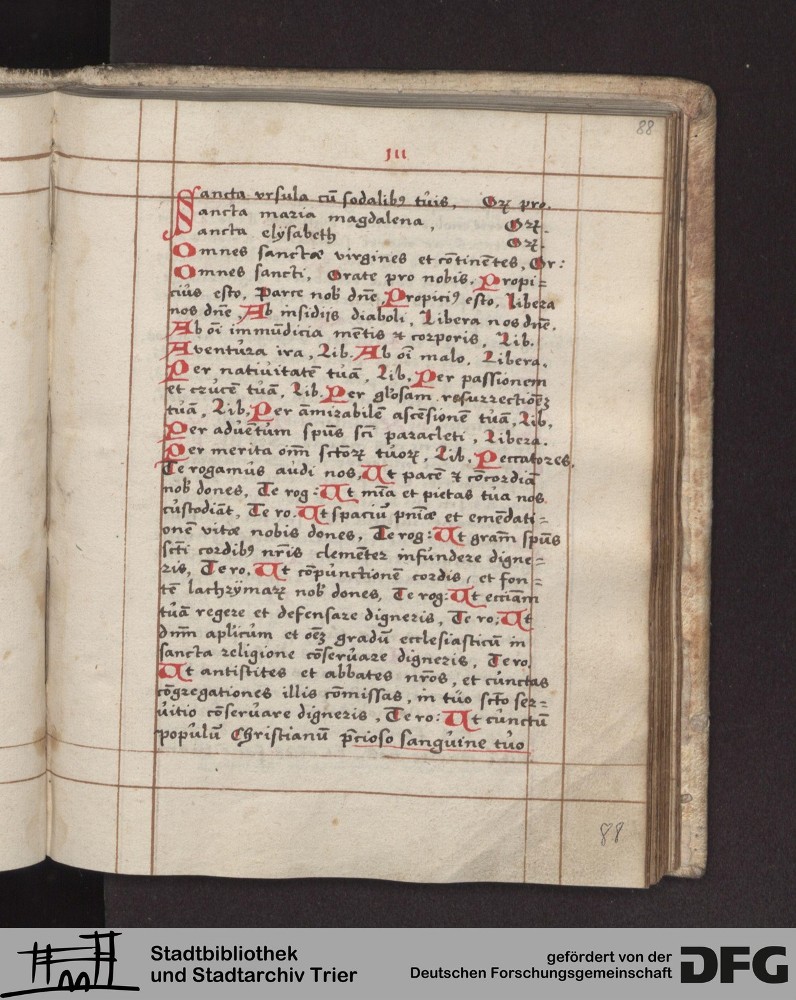 88
III
Sancta vrsula cũ sodalibꝰ tuis, Orꝫ pro.
Sancta maria magdalena, Orꝫ.
Sancta elÿsabeth Orꝫ.
Omnes sanctæ virgines et cõtinẽtes, Or:
Omnes sancti, Orate pro nobis, Propi=
cius esto, Parce nob' dñe, Propiciꝰ esto, libera
nos dñe, Ab insidijs diaboli, Libera nos dñe.
Ab oĩ immũdicia mẽtis et corporis, Lib.
Aventura ira, Lib. Ab oĩ malo, Libera.
Per natiuitatẽ tuã, Lib. Per passionem
et crucẽ tuã, Lib. Per gl'osam resurrectioẽꝫ
tuã, Lib. Per ãmirabilẽ ascẽsionẽ tuã, Lib.
Per aduẽtum spũs scĩ paracleti, Libera.
Per merita om̃ sctõrꝫ tuorꝫ, Lib. Peccatores,
Te rogamus audi nos, Ut pacẽ et cõcordiã
nob' dones, Te rog: Ut mĩa et pietas tua nos
custodiãt, Te ro. Ut spaciũ pnĩæ et emẽdati=
onẽ vitæ nobis dones, Te rog: Ut gram̃ spũs
sctĩ cordibꝰ nr̃is clementer infundere digne=
ris, Te ro. Ut cõpunctionẽ cordis, et fon=
tẽ lachrÿmarꝫ nob' dones, Te rog: Ut eccĩam
tuã regere et defensare digneris, Te ro: Ut
dnm̃ apl'icum et oẽꝫ gradũ ecclesiasticũ in
sancta religione cõseruare digneris, Te ro,
Ut antistites et abbates nr̃os, et cunctas
cõgregationes illis cõmissas, in tuo sctõ ser=
uitio cõseruare digneris, Te ro: Ut cunctũ
populũ Christianũ p̃cioso sanguine tuo
88
Stadtbibliothek
und Stadtarchiv Trier
gefördert von der
Deutschen Forschungsgemeinschaft
DFG